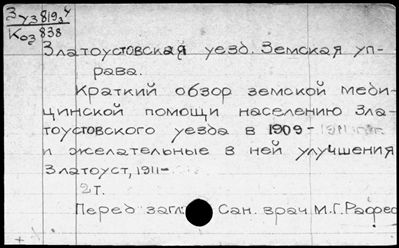 Зуз 819з4
Коз 838
Златоустовская уезд. Земская уп-
рава.
Краткий обзор земской меди-
цинской помощи населению Зла-
тоустовского уезда в 1909-
и желательные в ней улучшения
Златоуст, 1911-
2т.
Перед загл. Сан. врач М.Г. Рафес